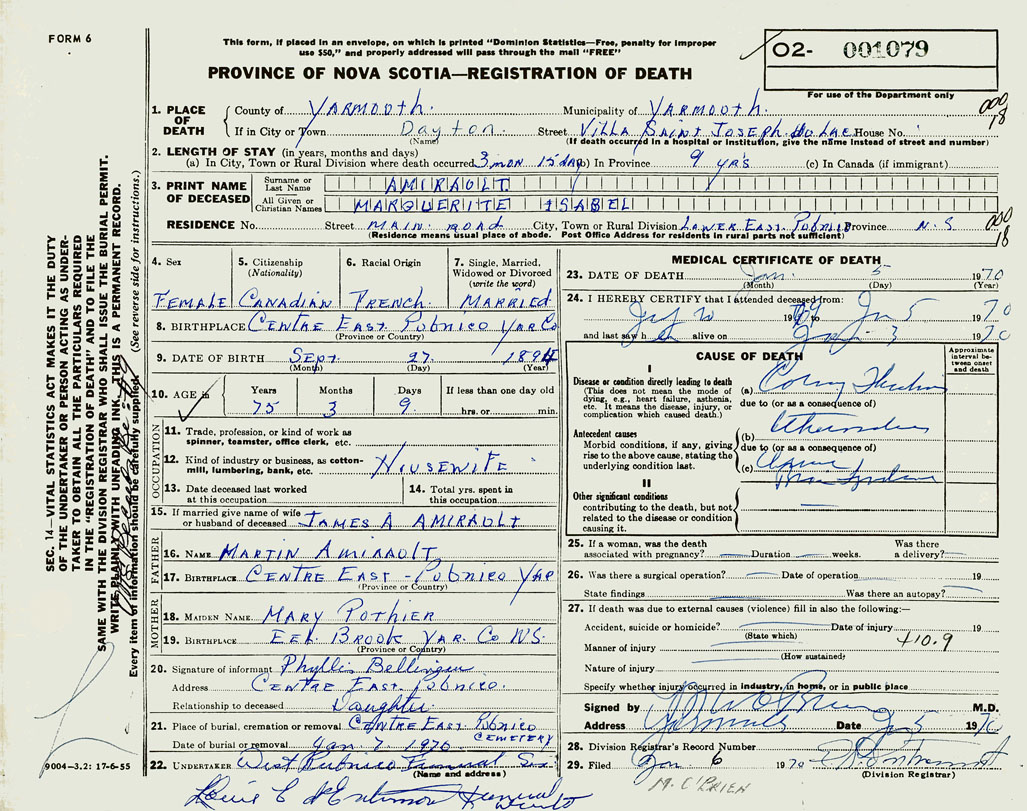 FORM 6
This form, if placed in an envelope, on which is printed "Dominion Statistics—Free, penalty for improper
use $50," and properly addressed will pass through the mail "FREE"
PROVINCE OF NOVA SCOTIA—REGISTRATION OF DEATH
O2- 001079
For use of the Department only
SEC. 14—VITAL STATISTICS ACT MAKES IT THE DUTY
OF THE UNDERTAKER OR PERSON ACTING AS UNDER-
TAKER TO OBTAIN ALL THE PARTICULARS REQUIRED
IN THE "REGISTRATION OF DEATH" AND TO FILE THE
SAME WITH THE DIVISION REGISTRAR WHO SHALL ISSUE THE BURIAL PERMIT.
WRITE PLAINLY WITH UNFADING INK. THIS IS A PERMANENT RECORD.
Every item of information should be carefully supplied. (See reverse side for instructions.)
1. PLACE OF DEATH
County of YARMOUTH. Municipality of YARMOUTH.
If in City or Town Dayton. Street VILLA SAINT JOSEPH DU LAC House No.
(Name) (If death occurred in a hospital or institution, give the name instead of street and number)
000
18
2. LENGTH OF STAY (in years, months and days)
(a) In City, Town or Rural Division where death occurred 3 mon 15 day (b) In Province 9 yrs (c) In Canada (if immigrant)
3. PRINT NAME OF DECEASED
Surname or Last Name AMIRAULT
All Given or Christian Names MARGUERITE ISABEL
RESIDENCE No. Street MAIN ROAD City, Town or Rural Division LOWER EAST PUBNICO Province N.S
(Residence means usual place of abode. Post Office Address for residents in rural parts not sufficient)
000
18
4. Sex FEMALE
5. Citizenship (Nationality) CANADIAN
6. Racial Origin FRENCH
7. Single, Married, Widowed or Divorced (write the word) MARRIED
8. BIRTHPLACE CENTRE EAST PUBNICO YAR Co
(Province or Country)
9. DATE OF BIRTH Sept. 27 1894
(Month) (Day) (Year)
10. AGE in Years 75 Months 3 Days 9 If less than one day old hrs. or min.
OCCUPATION
11. Trade, profession, or kind of work as spinner, teamster, office clerk, etc.
12. Kind of industry or business, as cotton-mill, lumbering, bank, etc. HOUSEWIFE
13. Date deceased last worked at this occupation
14. Total yrs. spent in this occupation
15. If married give name of wife or husband of deceased JAMES A AMIRAULT
FATHER
16. NAME MARTIN AMIRAULT
17. BIRTHPLACE CENTRE EAST - PUBNICO YAR
(Province or Country)
MOTHER
18. MAIDEN NAME MARY POTHIER
19. BIRTHPLACE EEL BROOK YAR. Co NS.
(Province or Country)
20. Signature of informant Phyllis Bellinger
Address CENTRE EAST PUBNICO.
Relationship to deceased Daughter
21. Place of burial, cremation or removal CENTRE EAST PUBNICO CEMETERY
Date of burial or removal Jan 7 1970
22. UNDERTAKER West Pubnico Funeral
(Name and address)
9004-3.2: 17-6-55
MEDICAL CERTIFICATE OF DEATH
23. DATE OF DEATH Jan. 5 1970
(Month) (Day) (Year)
24. I HEREBY CERTIFY that I attended deceased from:
19 to Jan 5 1970
and last saw h er alive on 1970
CAUSE OF DEATH
Approximate interval between onset and death
I
Disease or condition directly leading to death
(This does not mean the mode of dying, e.g., heart failure, asthenia, etc. It means the disease, injury, or complication which caused death.)
(a)
due to (or as a consequence of)
Antecedent causes
Morbid conditions, if any, giving rise to the above cause, stating the underlying condition last.
(b)
due to (or as a consequence of)
(c)
II
Other significant conditions contributing to the death, but not related to the disease or condition causing it.
25. If a woman, was the death associated with pregnancy? Duration weeks. Was there a delivery?
26. Was there a surgical operation? Date of operation 19
State findings Was there an autopsy?
27. If death was due to external causes (violence) fill in also the following:—
Accident, suicide or homicide? Date of injury 19
(State which)
Manner of injury 410.9
(How sustained)
Nature of injury
Specify whether injury occurred in industry, in home, or in public place
Signed by M.D.
Address Date Jan 5 1970
28. Division Registrar's Record Number
29. Filed Jan 6 1970
(Division Registrar)
M. O'BRIEN